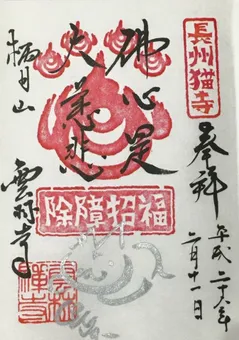 長州猫寺
奉拝
平成二十八年
二月十一日
佛心是
大慈悲
除障招福
栖月山
雲林寺
雲林
禅寺